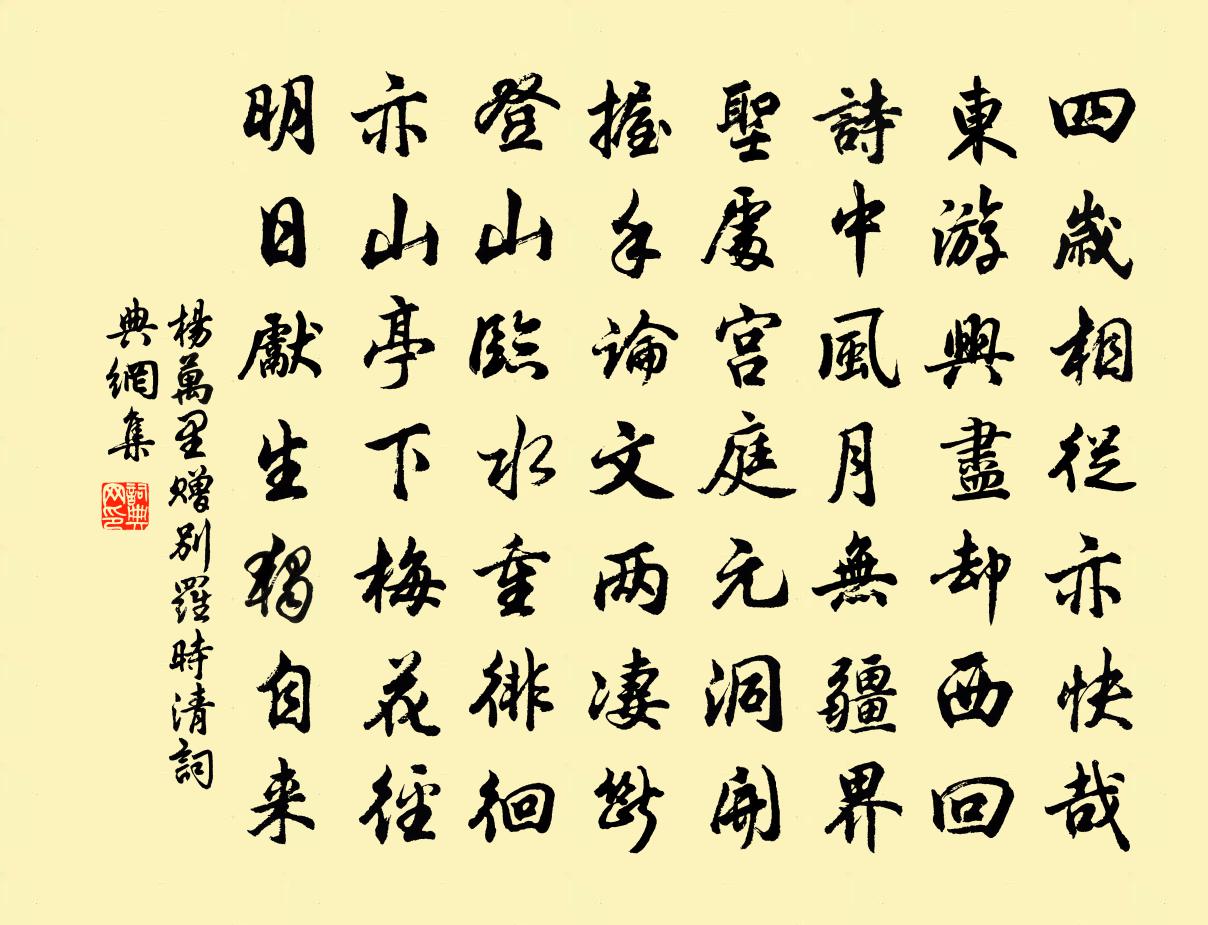 四歲相從亦快哉
東游興盡却西回
詩中風月無疆界
聖處宮庭元洞開
握手論文兩凄斷
登山臨水重徘徊
亦山亭下梅花徑
明日獻生獨自来
楊萬里贈別羅時清詞
典網集
詞典
网印